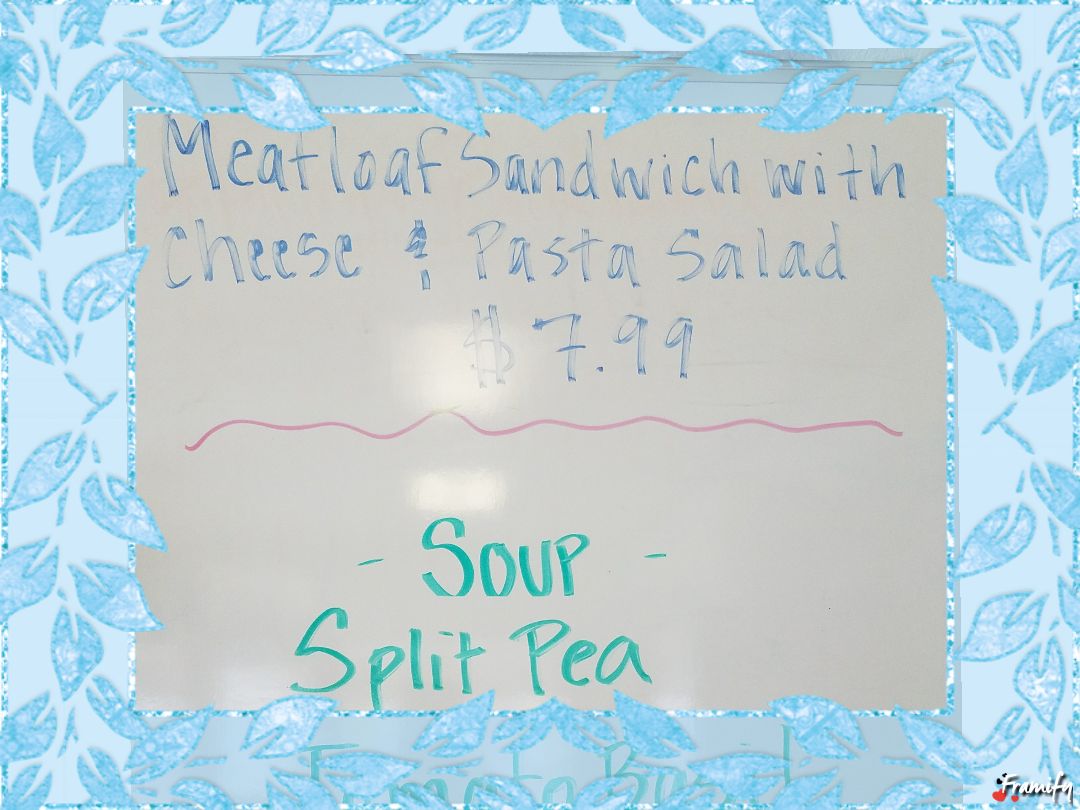 Meatloaf Sandwich with
Cheese & Pasta Salad
$7.99
- Soup -
Split Pea
Tomato Basil
Framify